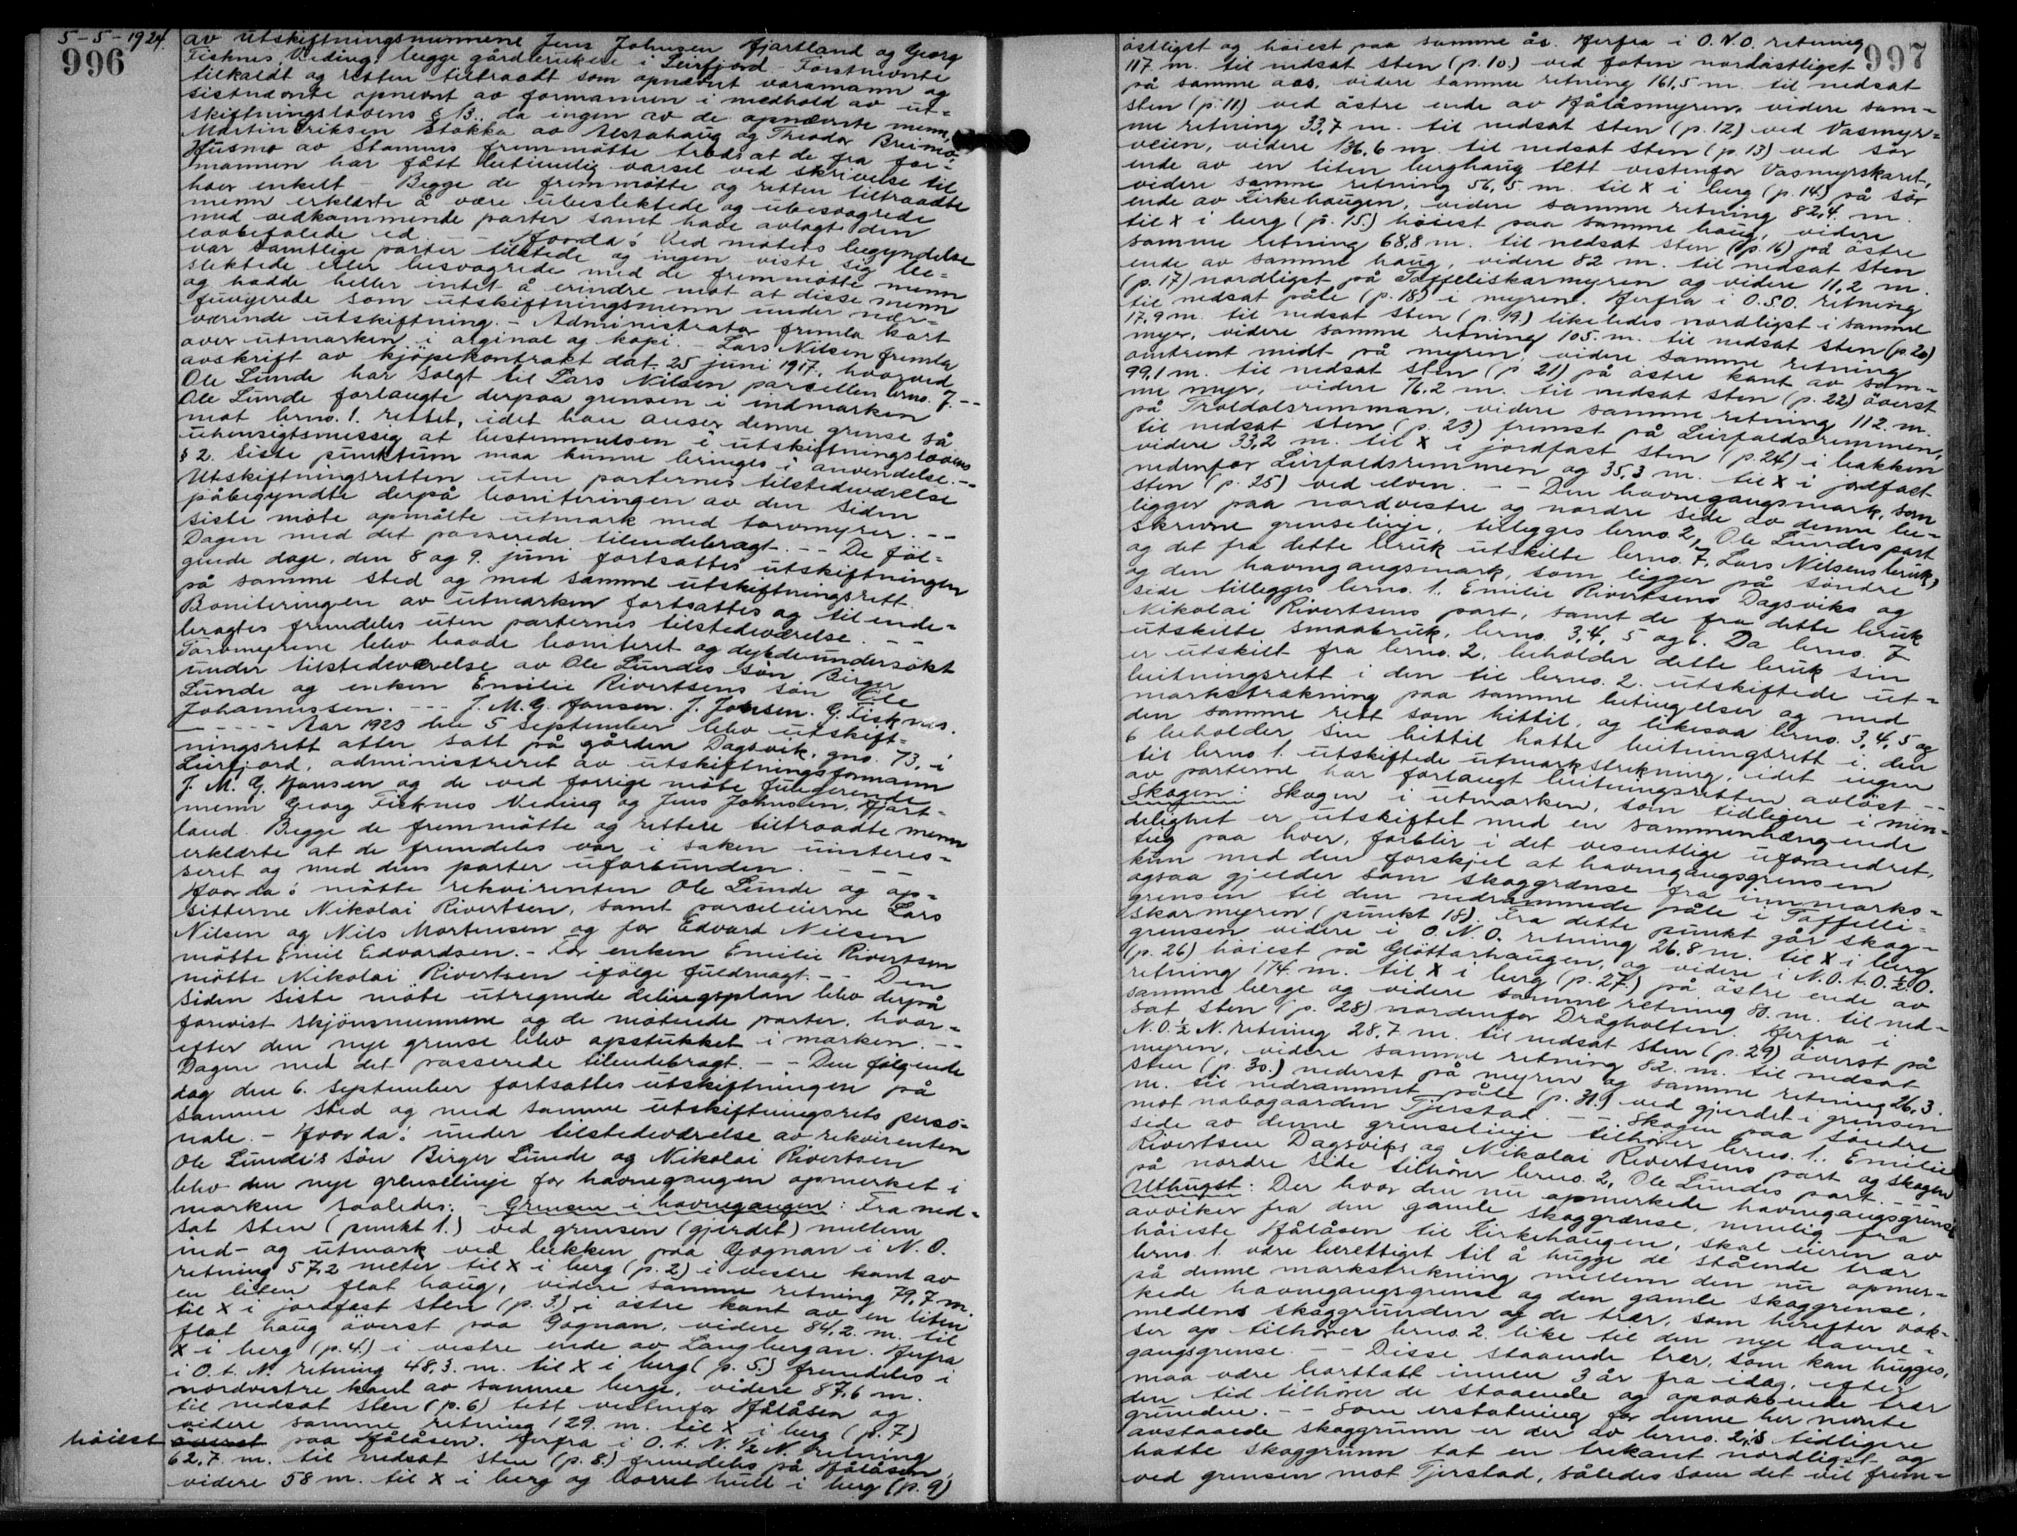 5-5-1924.
996
av utskiftningsmennene Jens Johnsen Hjartland og Georg
Fisknes Meding, begge gårdbrukere i Leirfjord. Førstnevnte
tilkaldt og retten tiltraadt som opnævnt varamann og
sistnævnte opnevnt av formannen i medhold av ut=
skiftningslovens § 13, da ingen av de opnævnte menn,
Martin Eriksen Stokka av Alstahaug og Theodor Breimo
Husmo av Stamnes fremmøtte trods at de fra for=
mannen har fått betimelig varsel ved skrivelse til
hver enkelt – Begge de fremmøtte og retten tiltraadte
menn erklærte å være ubeslektede og ubesvogrede
med vedkommende parter samt have avlagt den
lovbefalede ed. – Hvorda: Ved møtets begyndelse
var samtlige parter tilstede og ingen viste sig be=
slektede eller besvogrede med de fremmøtte menn
og hadde heller intet å erindre mot at disse menn
fungerede som utskiftningsmenn under nær=
værende utskiftning. – Administrator fremla kart
over utmarken i orginal og kopi. – Lars Nilsen fremla
avskrift av kjøpekontrakt dat. 25 juni 1917, hvorved
Ole Lunde har solgt til Lars Nilsen parsellen brno. 7. – –
Ole Lunde forlangte derpaa grensen i indmarken
mot brno. 1. rettet, idet han anser denne grense så
uhensigtsmessig at bestemmelsen i utskiftningslovens
§ 2. siste punktum maa kunne bringes i anvendelse. – –
Utskiftningsretten uten parternes tilstedeværelse
påbegyndte derpå boniteringen av den siden
siste møte opmålte utmark med torvmyrer. – –
Dagen med det passerede tilendebragt. – – De føl=
gende dage, den 8 og 9. juni fortsattes utskiftningen
på samme sted og med samme utskiftningsrett.
Boniteringen av utmarken fortsattes og tilende=
bragtes fremdeles uten parternes tilstedeværelse. – –
Torvmyrene blev baade boniteret og dybdeundersøkt
under tilstedeværelse av Ole Lundes søn Birger
Lunde og enken Emilie Rivertsens søn Ole
Johannessen. – – – J. M. G. Hansen. J. Johnsen. G. Fisknes.
– – – – Aar 1923 den 5 september blev utskift=
ningsrett atter satt på gården Dagsvik, gno. 73, i
Leirfjord, administreret av utskiftningsformann
J. M. G. Hansen og de ved forrige møte fungerende
menn Georg Fisknes Meding og Jens Johnsen, Hjart=
land. Begge de fremmøtte og rettere tiltraadte menn
erklærte at de fremdeles var i saken uinteres=
seret og med dens parter uforbunden. – – –
Hvorda: møtte rekvirenten Ole Lunde og op=
sitterne Nikolai Rivertsen, samt parseleierne Lars
Nilsen og Nils Mortensen og for Edvard Nilsen
møtte Emil Edvardsen. – For enken Emilie Rivertsen
møtte Nikolai Rivertsen ifølge fuldmagt. – – Den
siden siste møte utregnede delingsplan blev derpå
forevist skjønsmennene og de møtende parter, hvor=
efter den nye grense blev opstukket i marken. – –
Dagen med det passerede tilendebragt. – – Den følgende
dag den 6. september fortsattes utskiftningen på
samme sted og med samme utskiftningsrets perso=
nale. – Hvorda: under tilstedeværelse av rekvirenten
Ole Lunde's søn Birger Lunde og Nikolai Rivertsen
blev den nye grenselinje for havnegangen opmerket i
marken saaledes: – Grensen i havnegangen: Fra ned=
sat sten (punkt 1.) ved grensen (gjerdet) mellem
ind- og utmark ved bekken paa Gognan i N. O.
retning 57,2 meter til X i berg (p. 2) i vestre kant av
en liten flat haug, videre samme retning 79,7 m.
til X i jordfast sten (p. 3.) i østre kant av en liten
flat haug øverst paa Gognan, videre 84,2. m. til
X i berg (p. 4.) i vestre ende av Langbergan. Herfra
i O. t. N. retning 48,3. m. til X i berg (p. 5.) fremdeles i
nordvestre kant av samme berge, videre 87,6 m.
til nedsat sten (p. 6) tett vestenfor Hålåsen og
videre samme retning 129. m. til X i berg (p. 7)
høiest øverst paa Hålåsen. Herfra i O. t. N. ½ N. retning
62,7 m. til nedsat sten (p. 8.) fremdeles på Hålåsen,
videre 58 m. til X i berg og borret hull i berg (p. 9)
997
østligst og høiest paa samme ås. Herfra i O. N. O. retning
117 m. til nedsat sten (p. 10.) ved foten nordøstligst
på samme aas, videre samme retning 161,5 m. til nedsat
sten (p. 11) ved østre ende av Hålåsmyren, videre sam=
me retning 33,7 m. til nedsat sten (p. 12) ved Vasmyr=
veien, videre 136,6 m. til nedsat sten (p. 13) ved sør
ende av en liten berghaug tett vestenfor Vasmyrskaret,
videre samme retning 56,5 m. til X i berg (p. 14) på sør
ende av Kirkehaugen, videre samme retning 82,4. m.
til X i berg (p. 15.) høiest paa samme haug, videre
samme retning 68,8 m. til nedsat sten (p. 16) på østre
ende av samme haug, videre 82 m. til nedsat sten
(p. 17) nordligst på Taffeliskarmyren og videre 11,2 m.
til nedsat påle (p. 18) i myren. Herfra i O. S. O. retning
17,9 m. til nedsat sten (p. 19.) likeledes nordligst i samme
myr, videre samme retning 105. m. til nedsat sten (p. 20)
omtrent midt på myren, videre samme retning
99,1 m. til nedsat sten (p. 21) på østre kant av sam=
me myr, videre 76,2 m. til nedsat sten (p. 22) øverst
på Troldalsremman, videre samme retning 112 m.
til nedsat sten (p. 23) fremst på Leirfaldsremmen,
videre 33,2 m. til X i jordfast sten (p. 24) i bakken
nedenfor Leirfaldsremmen og 35,3 m. til X i jordfast
sten (p. 25) ved elven. – – Den havnegangsmark, som
ligger paa nordvestre og nordre side av denne be=
skrevne grenselinje, tillegges brno. 2, Ole Lundes part
og det fra dette bruk utskilte brno. 7, Lars Nilsens bruk,
og den havnegangsmark, som ligger på søndre
side tillegges brno. 1. Emilie Rivertsens Dagsviks og
Nikolai Rivertsens part, samt de fra dette bruk
utskilte smaabruk, brno. 3, 4, 5 og 6. Da brno. 7
er utskilt fra brno. 2, beholder dette bruk sin
beitningsrett i den til brno. 2. utskiftede ut=
markstrækning paa samme betingelser og med
den samme rett som hittil, og likesaa brno. 3, 4, 5 og
6 beholder sin hittil hatte beitningsrett i den
til brno. 1. utskiftede utmarkstrekning, idet ingen
av parterne har forlangt beitningsretten avløst. – –
Skogen: Skogen i utmarken, som tidligere i min=
delighet er utskiftet med en sammenhængende
teig paa hver, forblir i det vesentlige uforandret,
kun med den forskjel at havnegangsgrensen
ogsaa gjelder som skoggrænse fra innmarks=
grensen til den nedrammede påle i Taffelli=
skarmyren (punkt 18). Fra dette punkt går skog=
grensen videre i O. N. O. retning 26,8 m. til X i berg
(p. 26) høiest på Gløttarhaugen, og videre i N. O. t. O. ½ O.
retning 174. m. til X i berg (p. 27.) på østre ende av
samme berge og videre samme retning 88. m. til ned=
sat sten (p. 28) nordenfor Drågholten. Herfra i
N. O. ½ N. retning 28,7 m. til nedsat sten (p. 29) øverst på
myren, videre samme retning 82. m. til nedsat
sten (p. 30.) nederst på myren og samme retning 26,3.
m. til nedrammet påle (p. 31.) ved gjerdet i grensen
mot nabogaarden Tjerstad. – – Skogen paa søndre
side av denne grenselinje tilhører brno. 1. Emilie
Rivertsen Dagsviks og Nikolai Rivertsens part og skogen
på nordre side tilhører brno. 2, Ole Lundes part. – –
Uthugst: Der hvor den nu opmerkede havnegangsgrense
avviker fra den gamle skoggrænse, nemlig fra
høieste Hålåsen til Kirkehaugen, skal eieren av
brno. 1. være berettiget til å hugge de stående trær
på denne markstrekning mellem den nu opmer=
kede havnegangsgrense og den gamle skoggrense,
medens skoggrunden og de trær, som herefter vok=
ser op tilhører brno. 2. like til den nye havne=
gangsgrense. – – Disse staaende trær, som kan hugges,
maa være borttatt innen 3 år fra idag, efter
den tid tilhører de staaende og opvoksende trær
grunden. – – Som erstatning for denne her nevnte
avstaaede skoggrunn er der av brno. 2's tidligere
hatte skoggrunn tat en trekant nordligst og
ved grensen mot Tjerstad, således som det vil frem=